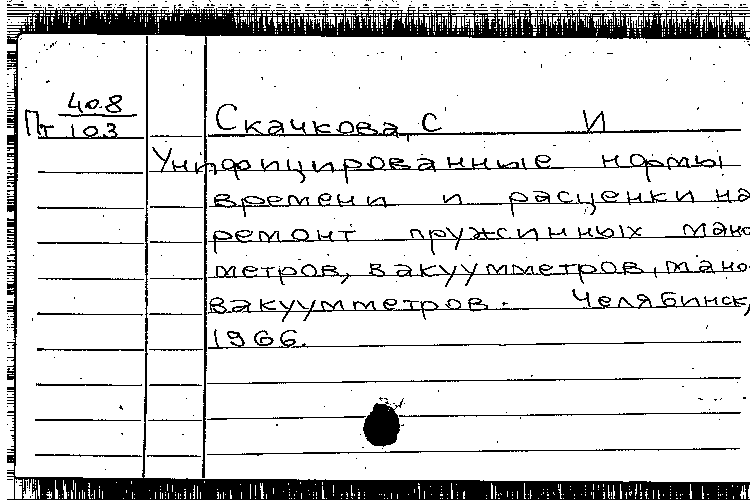 40.8
Пт 103
Скачкова, С И
Унифицированные нормы
времени и расценки на
ремонт пружинных мано
метров, вакуумметров, мано-
вакуумметров. Челябинск,
1966.